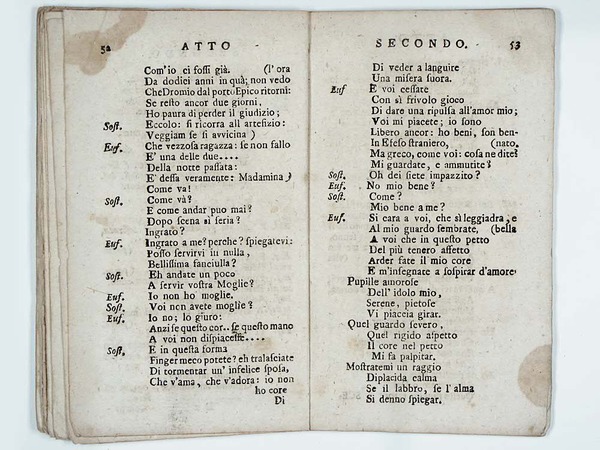 52 ATTO
Com'io ci fossi già. (l'ora
Da dodici anni in quà; non vedo
CheDromio dal porto Epico ritorni:
Se resto ancor due giorni,
Ho paura di perder il giudizio;
Sost. Eccolo: si ricorra all'artefizio:
Veggiam se si avvicina )
Euf. Che vezzosa ragazza: se non fallo
E' una delle due....
Della notte passata:
E' dessa veramente: Madamina)
Come va!
Sost. Come và?
E come andar puo mai?
Dopo scena sì seria?
Ingrato?
Euf. Ingrato a me? perche? spiegatevi:
Posso servirvi in nulla,
Bellissima fanciulla?
Sost. Eh andate un poco
A servir vostra Moglie?
Euf. Io non ho moglie.
Sost. Voi non avete moglie?
Euf. Io no; lo giuro:
Anzi se questo cor.. se questo mano
A voi non dispiacesse....
Sost. E in questa forma
Finger meco potete? eh tralasciate
Di tormentar un' infelice sposa,
Che v'ama, che v'adora: io non
ho core
Di
SECONDO. 53
Di veder a languire
Una misera suora.
Euf E voi cessate
Con sì frivolo gioco
Di dare una ripulsa all'amor mio;
Voi mi piacete; io sono
Libero ancor: ho beni, son ben-
In Efeso straniero, (nato.
Ma greco, come voi: cosa ne dite?
Mi guardate, e ammutite?
Sost. Oh dei siete impazzito?
Euf. No mio bene?
Sost. Come?
Mio bene a me?
Euf. Si cara a voi, che sì leggiadra, e
Al mio guardo sembrate, (bella
A voi che in questo petto
Del più tenero affetto
Arder fate il mio core
E m'insegnate a sospirar d'amore.
Pupille amorose
Dell' idolo mio,
Serene, pietose
Vi piaccia girar.
Quel guardo severo,
Quel rigido aspetto
Il core nel petto
Mi fa palpitar.
Mostratemi un raggio
Diplacida calma
Se il labbro, se l'alma
Si denno spiegar.